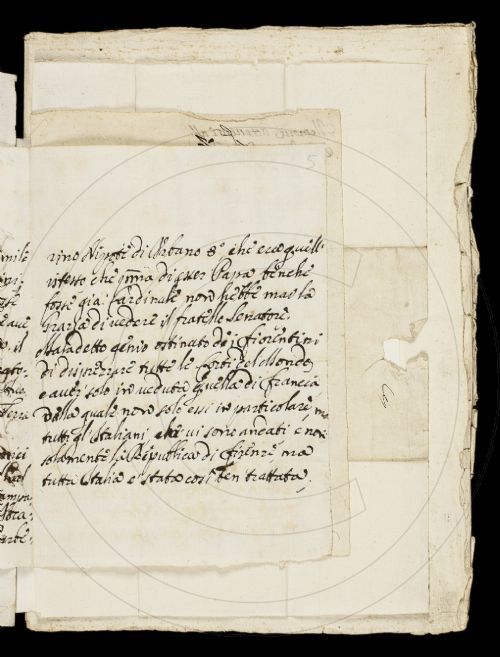 5
rino Nipote di Urbano 8.º che era quell'
istesso che prima di esser Papa benche
fosse già Cardinale non hebbe mai la
grazia di vedere il fratello Senatore.
Maladetto genio ostinato dei Fiorentini
di disprezzare tutte le Corti del Mondo
e aver solo in veduta quella di Francia
dalla quale non solo essi in particolare, ma
tutti gl'Italiani che vi sono andati e non
solamente la Republica di Firenze ma
tutta Italia e stata così ben trattata.